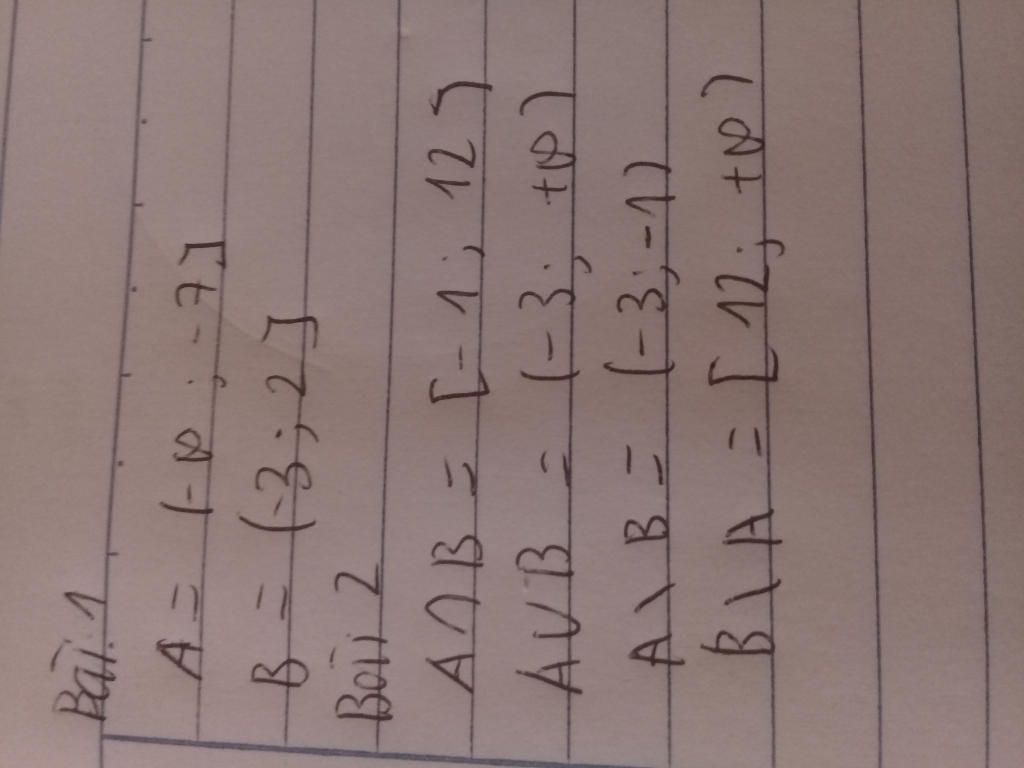 Bài 1
A = (-∞; -7]
B = (-3; 2]
Bài 2
A ∩ B = [-1; 12)
A ∪ B = (-3; +∞)
A \ B = (-3; -1)
B \ A = [12; +∞)